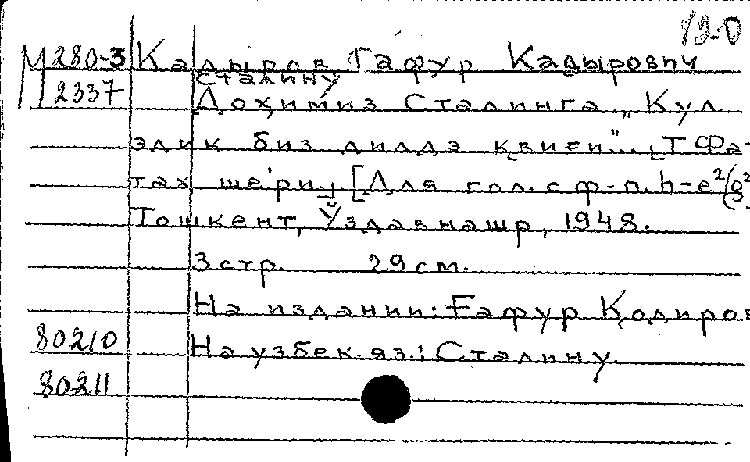 120
М 280-3 Кадыров Гафур Кадырович
Сталину
2337 Дохимиз Сталинга „Куй
эдик биз дилда қвиеи". [Т. Фа-
тах ше'ри] [Для гол. с ф-п. h-e²/g²
Тошкент, Ўздавнашр, 1948.
3 стр. 29 см.
На издании: Ғафур Қодиров
80210 На узбек. яз.: Сталину
80211